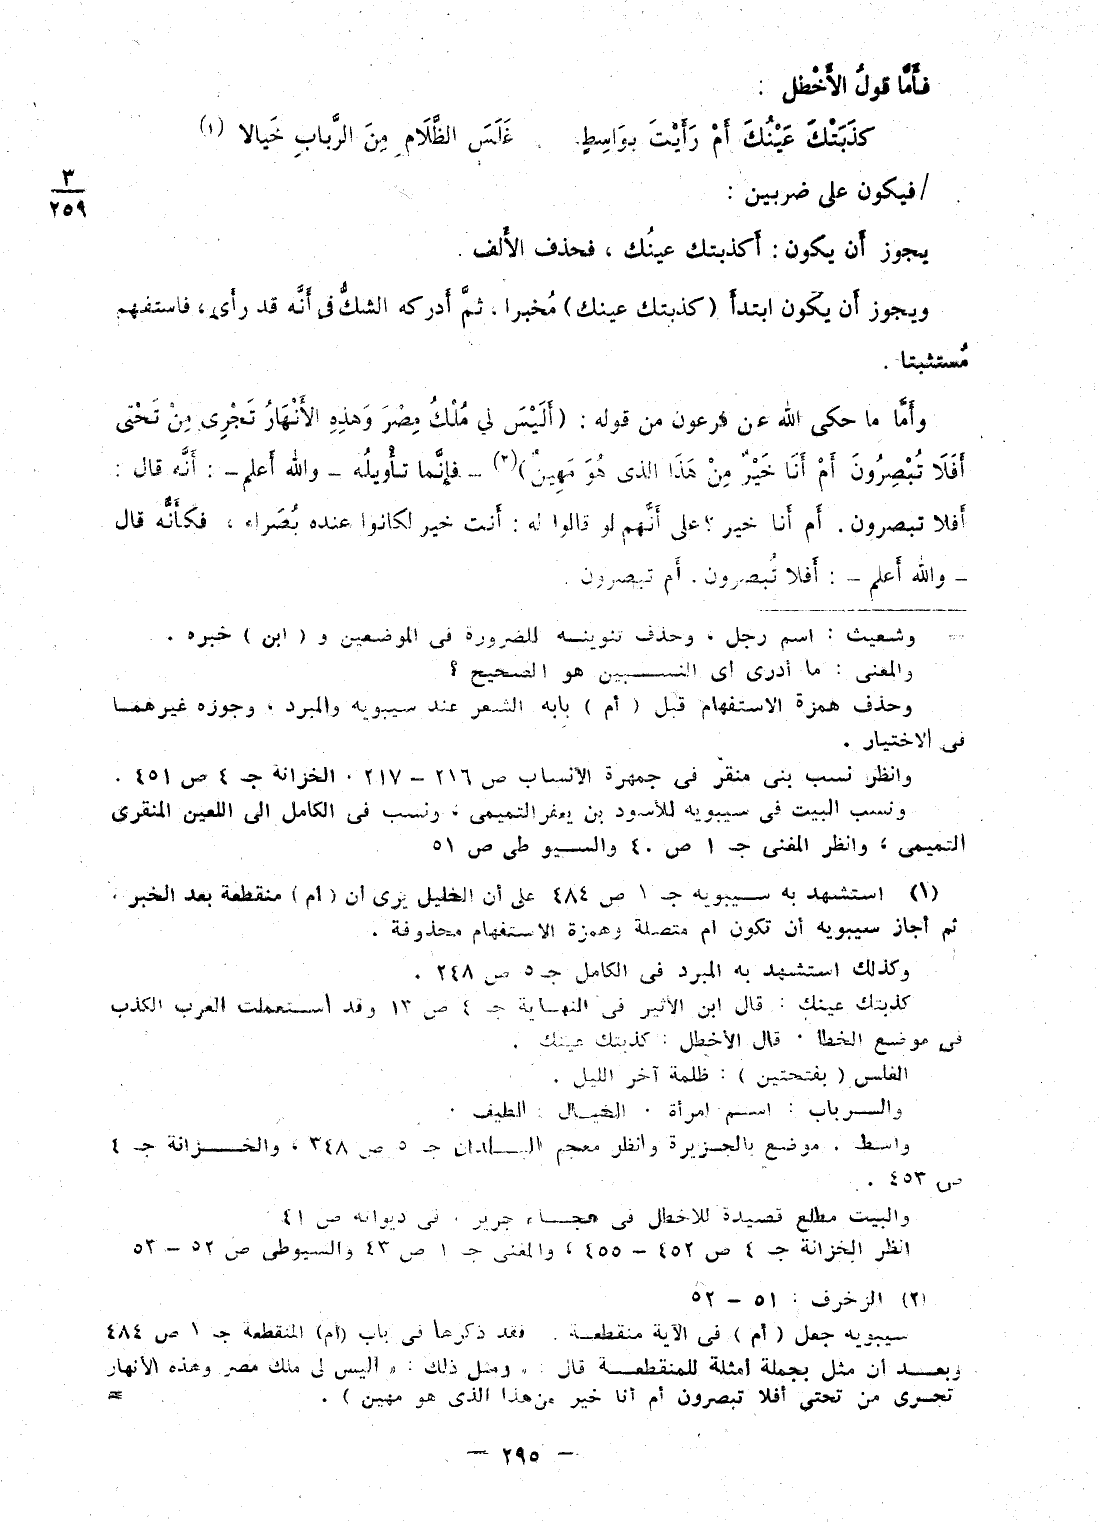 فأَمَّا قولُ الأَخْطل :
كَذَبَتْكَ عَيْنُكَ أَمْ رَأَيْتَ بِوَاسِطٍ غَلَسَ الظَّلَامِ مِنَ الرَّبابِ خَيالا (١)
/ فيكون على ضربين :
٣
٢٥٩
يجوز أَن يكون : أَكذبتك عينُك ، فحذف الأَلف .
ويجوز أَن يكون ابتدأَ (كذبتك عينك) مُخبرا ، ثمَّ أَدركه الشكُّ فى أَنَّه قد رأَى ، فاستفهم
مُستثبتا .
وأَمَّا ما حكى الله عن فرعون من قوله : (أَلَيْسَ لي مُلْكُ مِصْرَ وَهذِهِ الأَنْهَارُ تَجْرِى مِنْ تَحْتى
أَفَلَا تُبْصِرُونَ أَمْ أَنَا خَيْرٌ مِنْ هَذَا الذى هُوَ مَهِينٌ)(٢) – فإِنَّما تأْويلُه – والله أَعلم – : أَنَّه قال :
أَفلا تبصرون . أَم أَنا خير ؟ على أَنَّهم لو قالوا له : أَنت خير لكانوا عنده بُصَراء ، فكأَنَّه قال
– والله أَعلم – : أَفلا تُبصرون . أَم تبصرون .
= وشعيث : اسم رجل ، وحذف تنوينه للضرورة فى الموضعين و ( ابن ) خبره .
والمعنى : ما أدرى أى النسبين هو الصحيح ؟
وحذف همزة الاستفهام قبل ( أم ) بابه الشعر عند سيبويه والمبرد ، وجوزه غيرهما
فى الاختيار .
وانظر نسب بنى منقر فى جمهرة الأنساب ص ٢١٦ – ٢١٧ . الخزانة جـ ٤ ص ٤٥١ .
ونسب البيت فى سيبويه للأسود بن يعفر التميمى ، ونسب فى الكامل الى اللعين المنقرى
التميمى ، وانظر المغنى جـ ١ ص ٤٠ والسيوطى ص ٥١
(١) استشهد به سيبويه جـ ١ ص ٤٨٤ على أن الخليل يرى أن ( أم ) منقطعة بعد الخبر ،
ثم أجاز سيبويه أن تكون أم متصلة وهمزة الاستفهام محذوفة .
وكذلك استشهد به المبرد فى الكامل جـ ٥ ص ٢٤٨ .
كذبتك عينك : قال ابن الأثير فى النهاية جـ ٤ ص ١٣ وقد أستعملت العرب الكذب
فى موضع الخطا . قال الأخطل : كذبتك عينك .
الغلس ( بفتحتين ) : ظلمة آخر الليل .
والرباب : اسم امرأة . الخيال : الطيف .
واسط . موضع بالجزيرة وانظر معجم البلدان جـ ٥ ص ٣٤٨ ، والخزانة جـ ٤
ص ٤٥٣ .
والبيت مطلع قصيدة للاخطل فى هجاء جرير . فى ديوانه ص ٤١
انظر الخزانة جـ ٤ ص ٤٥٢ – ٤٥٥ ، والمغنى جـ ١ ص ٤٣ والسيوطى ص ٥٢ – ٥٣
(٢) الزخرف : ٥١ – ٥٢
سيبويه جعل ( أم ) فى الآية منقطعة . فقد ذكرها فى باب (أم) المنقطعة جـ ١ ص ٤٨٤
وبعد أن مثل بجملة أمثلة للمنقطعة قال : « ومثل ذلك : « أليس لى ملك مصر وهذه الأنهار
تجرى من تحتى أفلا تبصرون أم أنا خير من هذا الذى هو مهين ) . =
– ٢٩٥ –